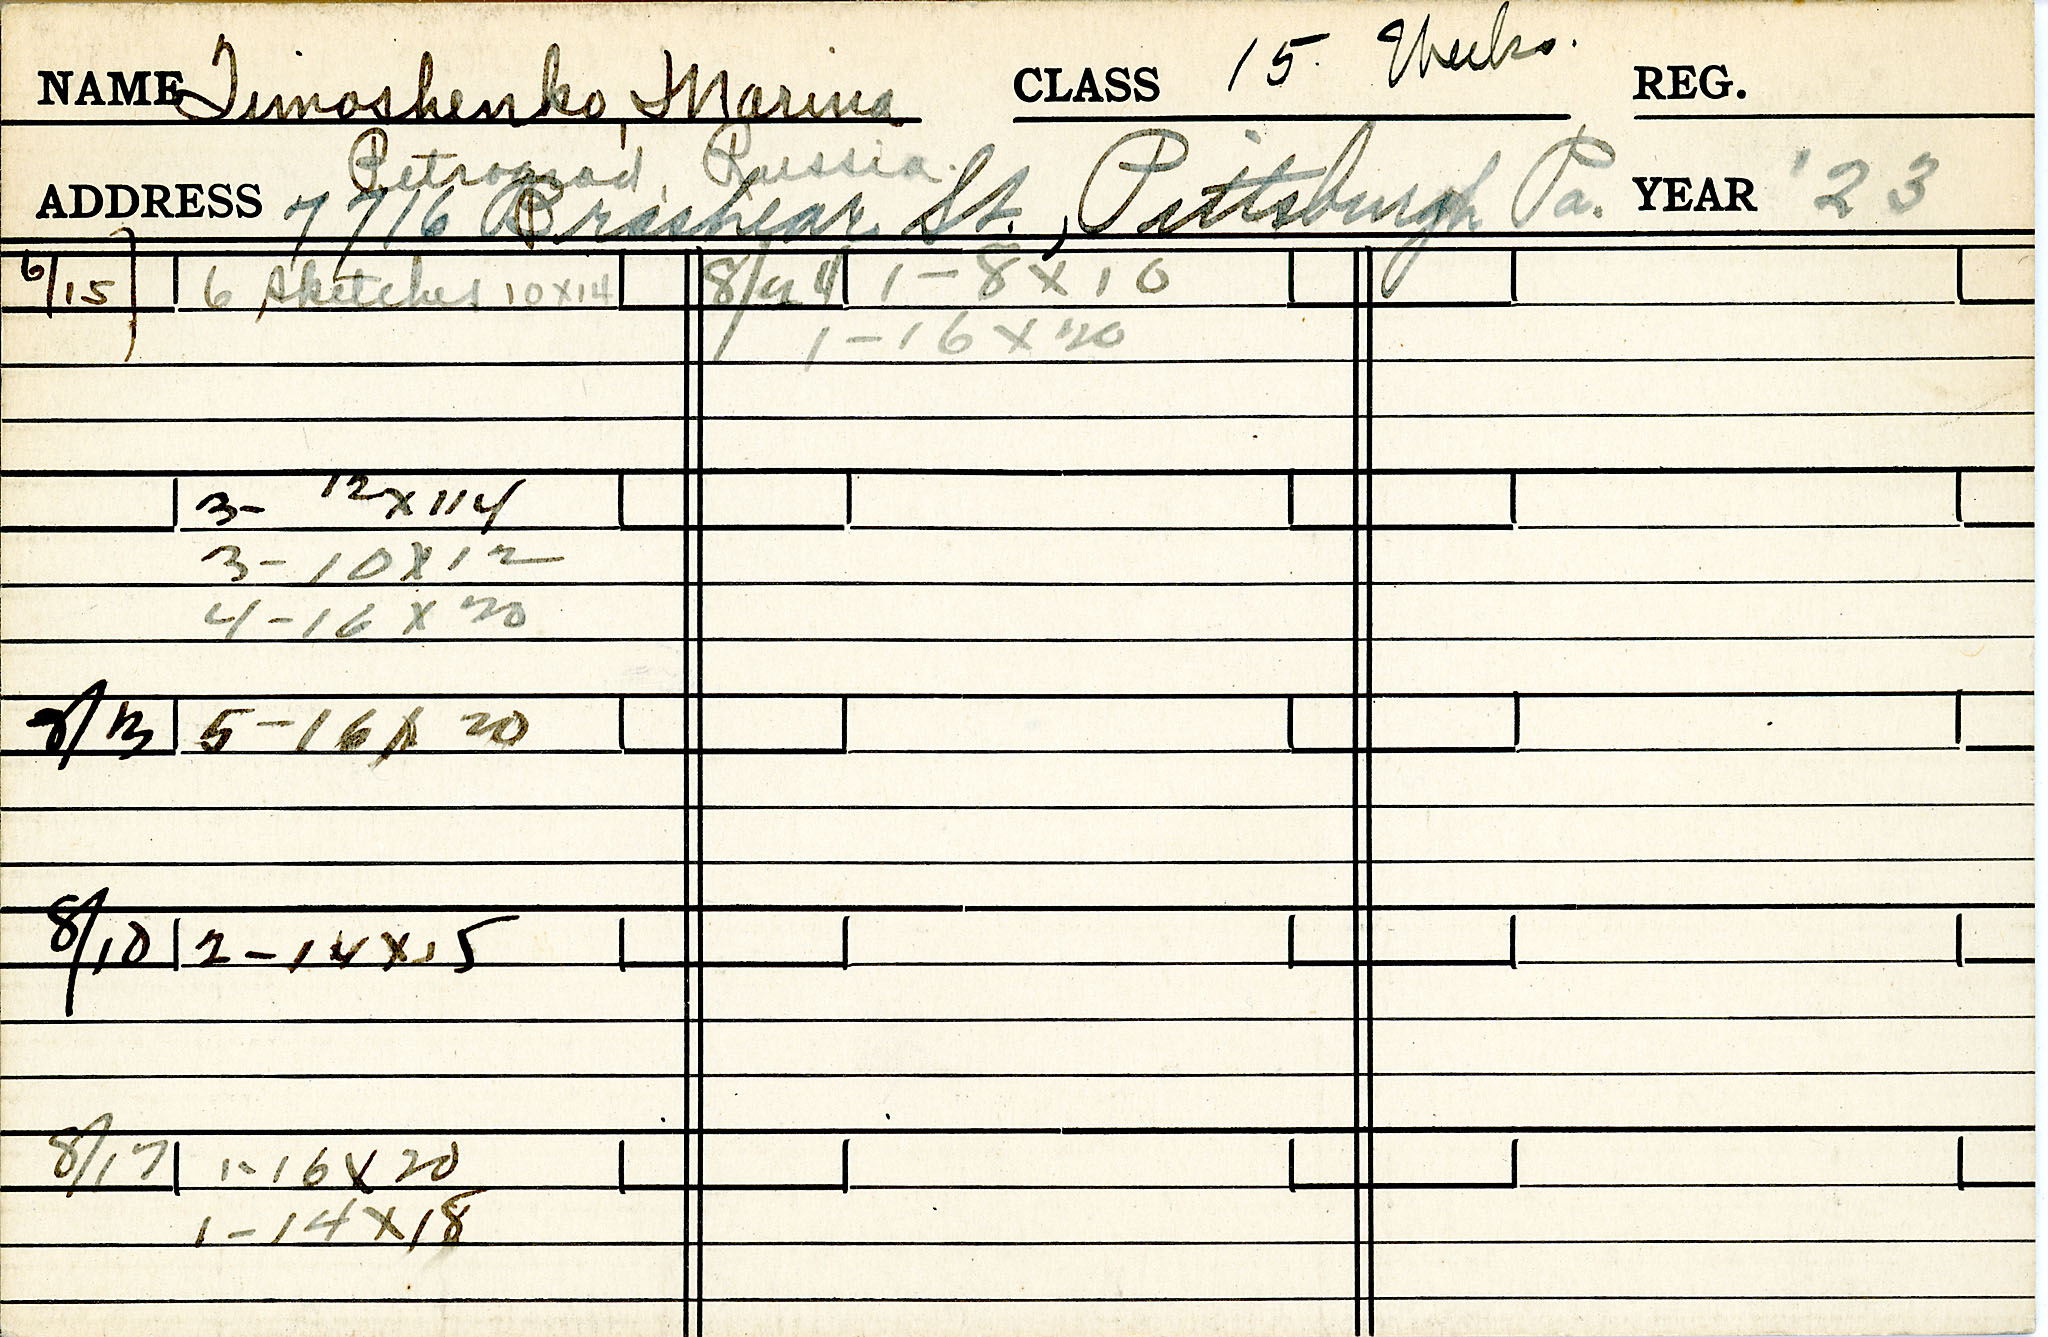 NAME Timoshenko, Marina CLASS 15. Weeks. REG.
Petrograd, Russia.
ADDRESS 7716 Brashear St., Pittsburgh Pa. YEAR '23
6/15 6 sketches 10x14
8/24 1-8x10
1-16x20
3- 12x114
3-10x12
4-16x20
5-16x20
8/10 2-14x15
8/17 1-16x20
1-14x18